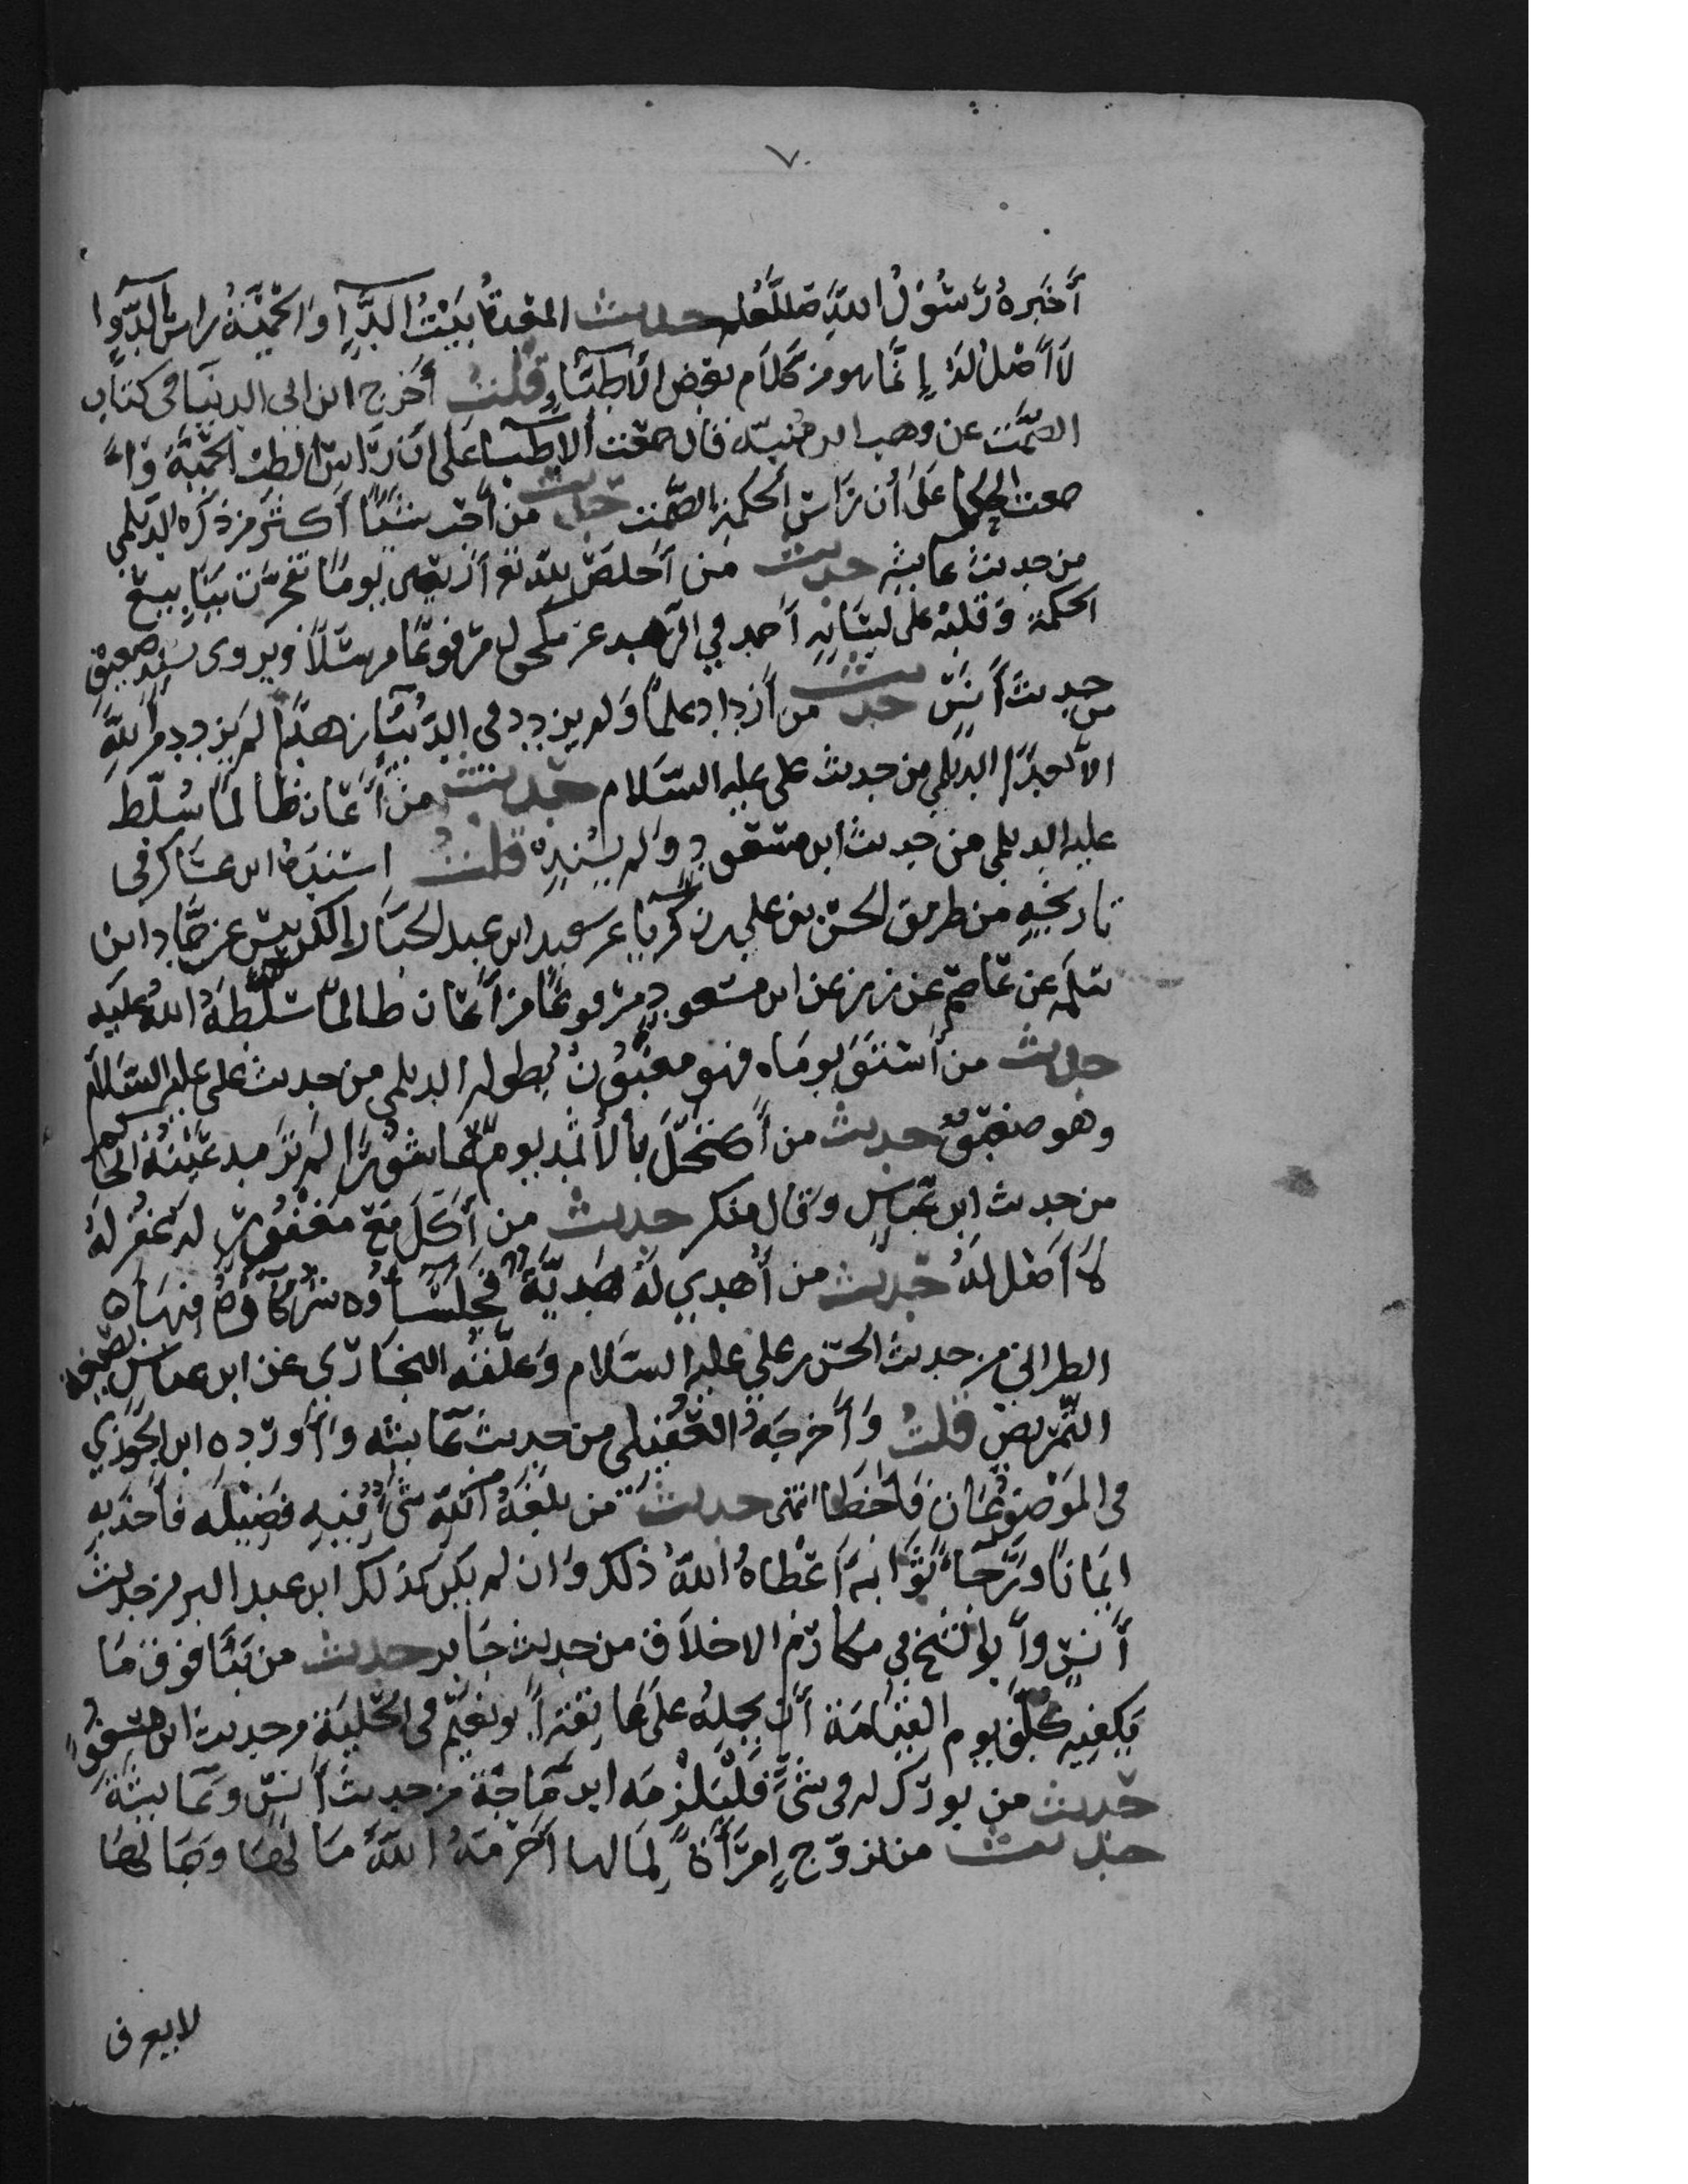 ٧٠
أخبره رسول الله صللعلم حديث المعدة بيت الدآء والحمية راس الدوا
لا أصل له إنما هو من كلام بعض الأطباء قلت أخرج ابن ابي الدنيا في كتاب
الصمت عن وهب ابن منبه قال اجمعت الاطبا على ان راس الطب الحمية و
اجمعت الحكما على أن راس الحكمة الصمت حديث من أحب شيئا أكثر من ذكره الديلمي
من حديث عايشه حديث من أخلص لله تعالى أربعين يوما تفجرت ينابيع
الحكمة وقلبه على لسانه أحمد في الزهد عن مكحول مرفوعا مرسلا ويروى بسند ضعيف
من حديث أنس حديث من أزداد علما ولم يزدد في الدنيا زهدا لم يزدد من الله
الا بعدا الديلمي من حديث علي عليه السلام حديث من أعان ظالما سلط
عليه الديلمي من حديث ابن مسعود ولم يسنده قلت اسنده ابن عساكر في
تاريخه من طريق الحسن بن علي بن زكريا عن سعيد ابن عبد الجبار الكرابيسي عن حماد ابن
سلمه عن عاصم عن زر عن ابن مسعود مرفوعا من أعان ظالما سلطه الله عليه
حديث من أستوى يوماه فهو مغبون بطوله الديلمي من حديث علي عليه السلام
وهو ضعيف حديث من أكتحل بالأثمد يوم عاشورا لم ترمد عينه الحاكم
من حديث ابن عباس وقال منكر حديث من أكل مع مغفور له غفر له
لا أصل له حديث من أهدي له هدية فجلساؤه شركاؤه فيها
الطبراني من حديث الحسن بن علي عليه السلام وعلقه البخاري عن ابن عباس بصيغة
التمريض قلت وأخرجه العقيلي من حديث عايشه وأورده ابن الجوزي
في الموضوعات فأخطا انتهى حديث من بلغه عن الله شئ فيه فضيله فأخذ به
ايمانا ورجاء ثوابه أعطاه الله ذلك وان لم يكن كذلك ابن عبد البر من حديث
أنس وأبو الشيخ في مكارم الاخلاق من حديث جابر حديث من بنا فوق ما
يكفيه كلف يوم القيامة أن يحمله على عاتقه أبو نعيم في الحلية من حديث ابن مسعود
حديث من بورك له في شئ فليلزمه ابن ماجة من حديث أنس وعايشة
حديث من تزوج إمرأة لمالها أحرمه الله مالها وجمالها
لا يعرف